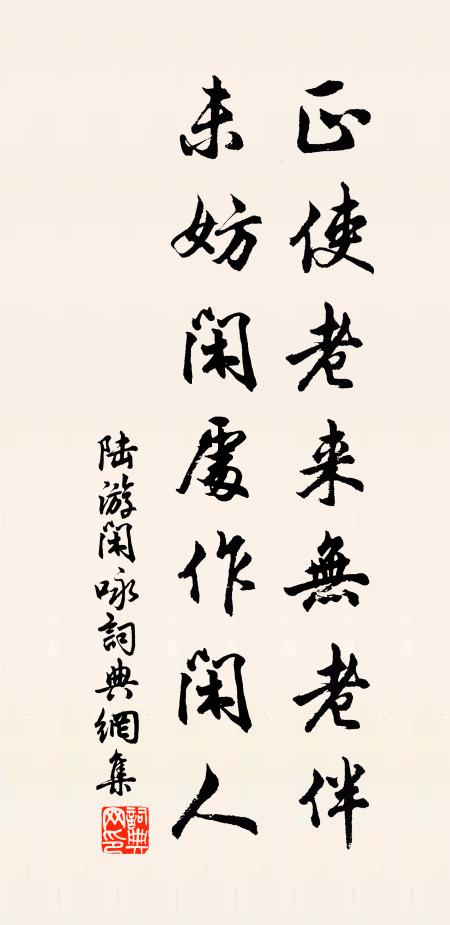 正使老来無老伴
未妨閑處作閑人
陆游閑咏詞典網集
詞典網印